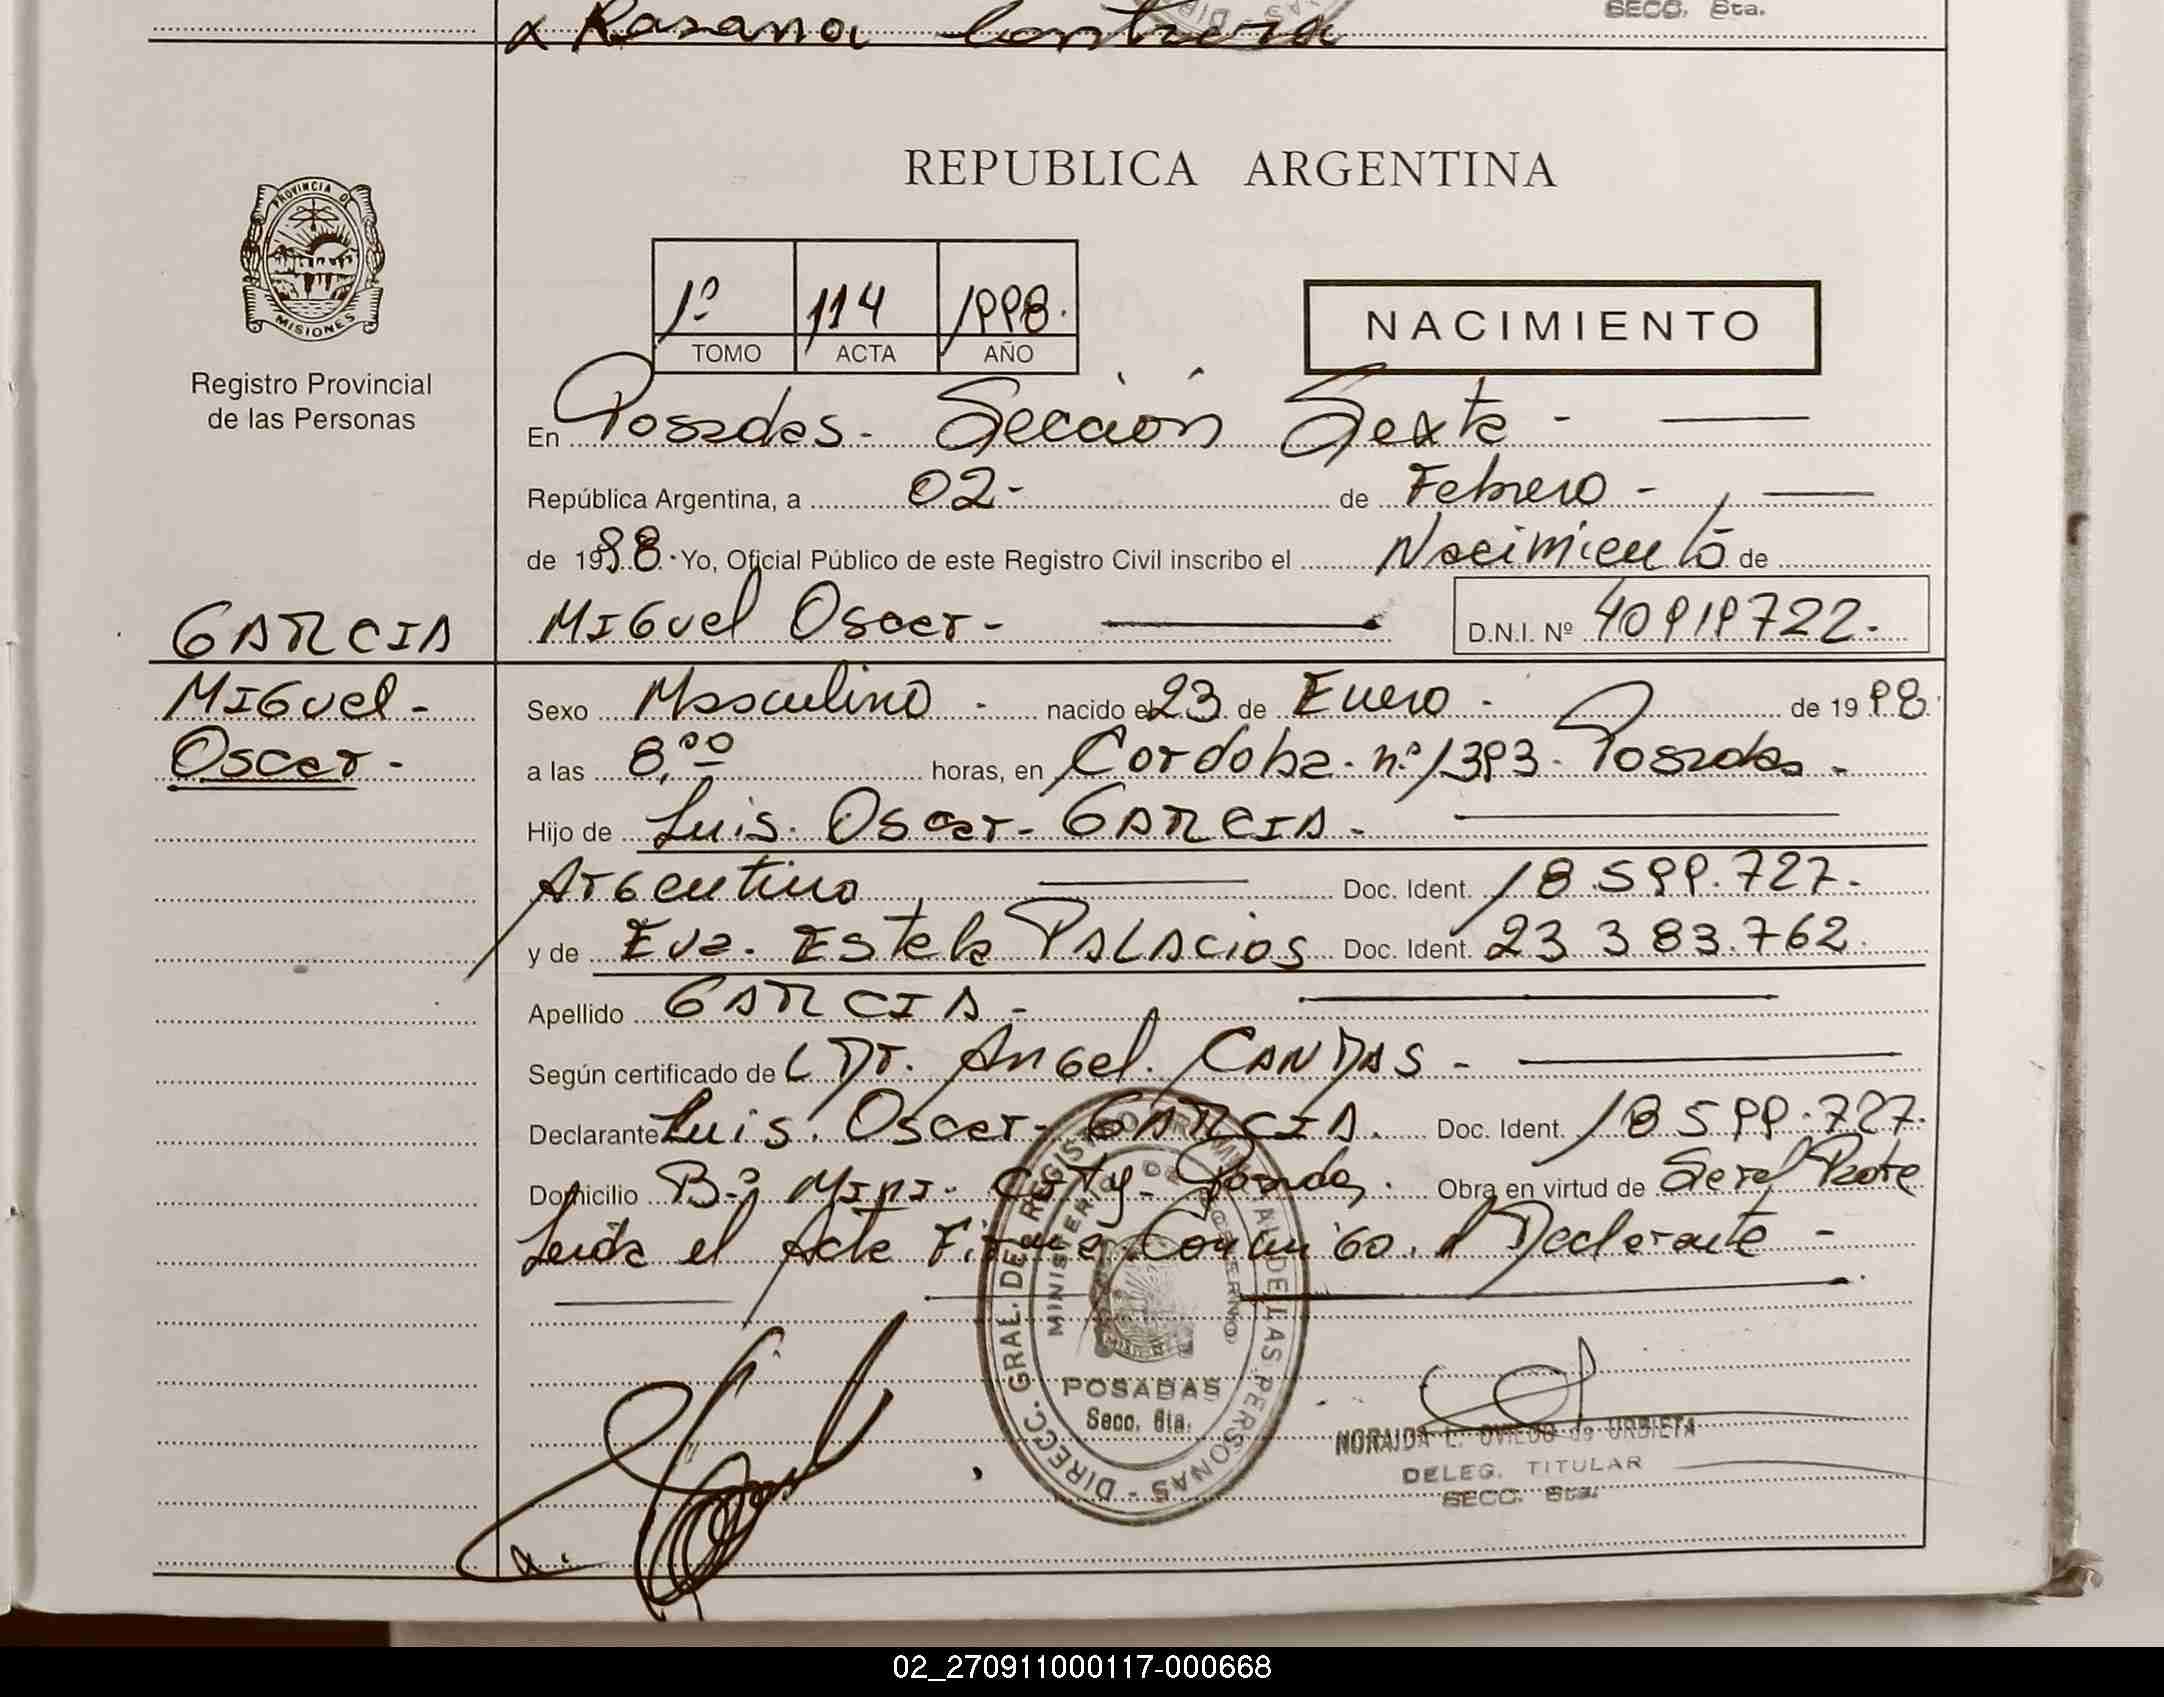 x Rosana Contrera
SECC. 6ta.
PROVINCIA DE
MISIONES
Registro Provincial
de las Personas
REPUBLICA ARGENTINA
1º 114 1998.
TOMO ACTA AÑO
NACIMIENTO
En Posadas. Sección Sexta -
República Argentina, a 02- de Febrero -
de 1998. Yo, Oficial Público de este Registro Civil inscribo el Nacimiento de
MIGuel Oscar - D.N.I. Nº 40919722.
GARCIA
MIGuel -
Oscar -
Sexo Masculino - nacido el 23 de Enero - de 1998.
a las 8,00 horas, en Cordoba. nº 1393. Posadas -
Hijo de Luis. Oscar - GARCIA -
Argentino Doc. Ident. 18.599.727.
y de Eva. Estela PALACios Doc. Ident. 23 383.762.
Apellido GARCIA -
Según certificado de Dr. Angel. CANDAS -
Declarante Luis. Oscar - GARCIA. Doc. Ident. 18 599.727.
Domicilio Bº Mini - City - Posadas. Obra en virtud de Ser el Padre
Leida el Acta Firma Conmigo. el Declarante -
DIRECC. GRAL. DEL REGISTRO PROVINCIAL DE LAS PERSONAS -
MINISTERIO DE GOBIERNO
POSADAS
Secc. 6ta.
NORAIDA L. OVIEDO de URBIETA
DELEG. TITULAR
SECC. 6ta.
02_270911000117-000668